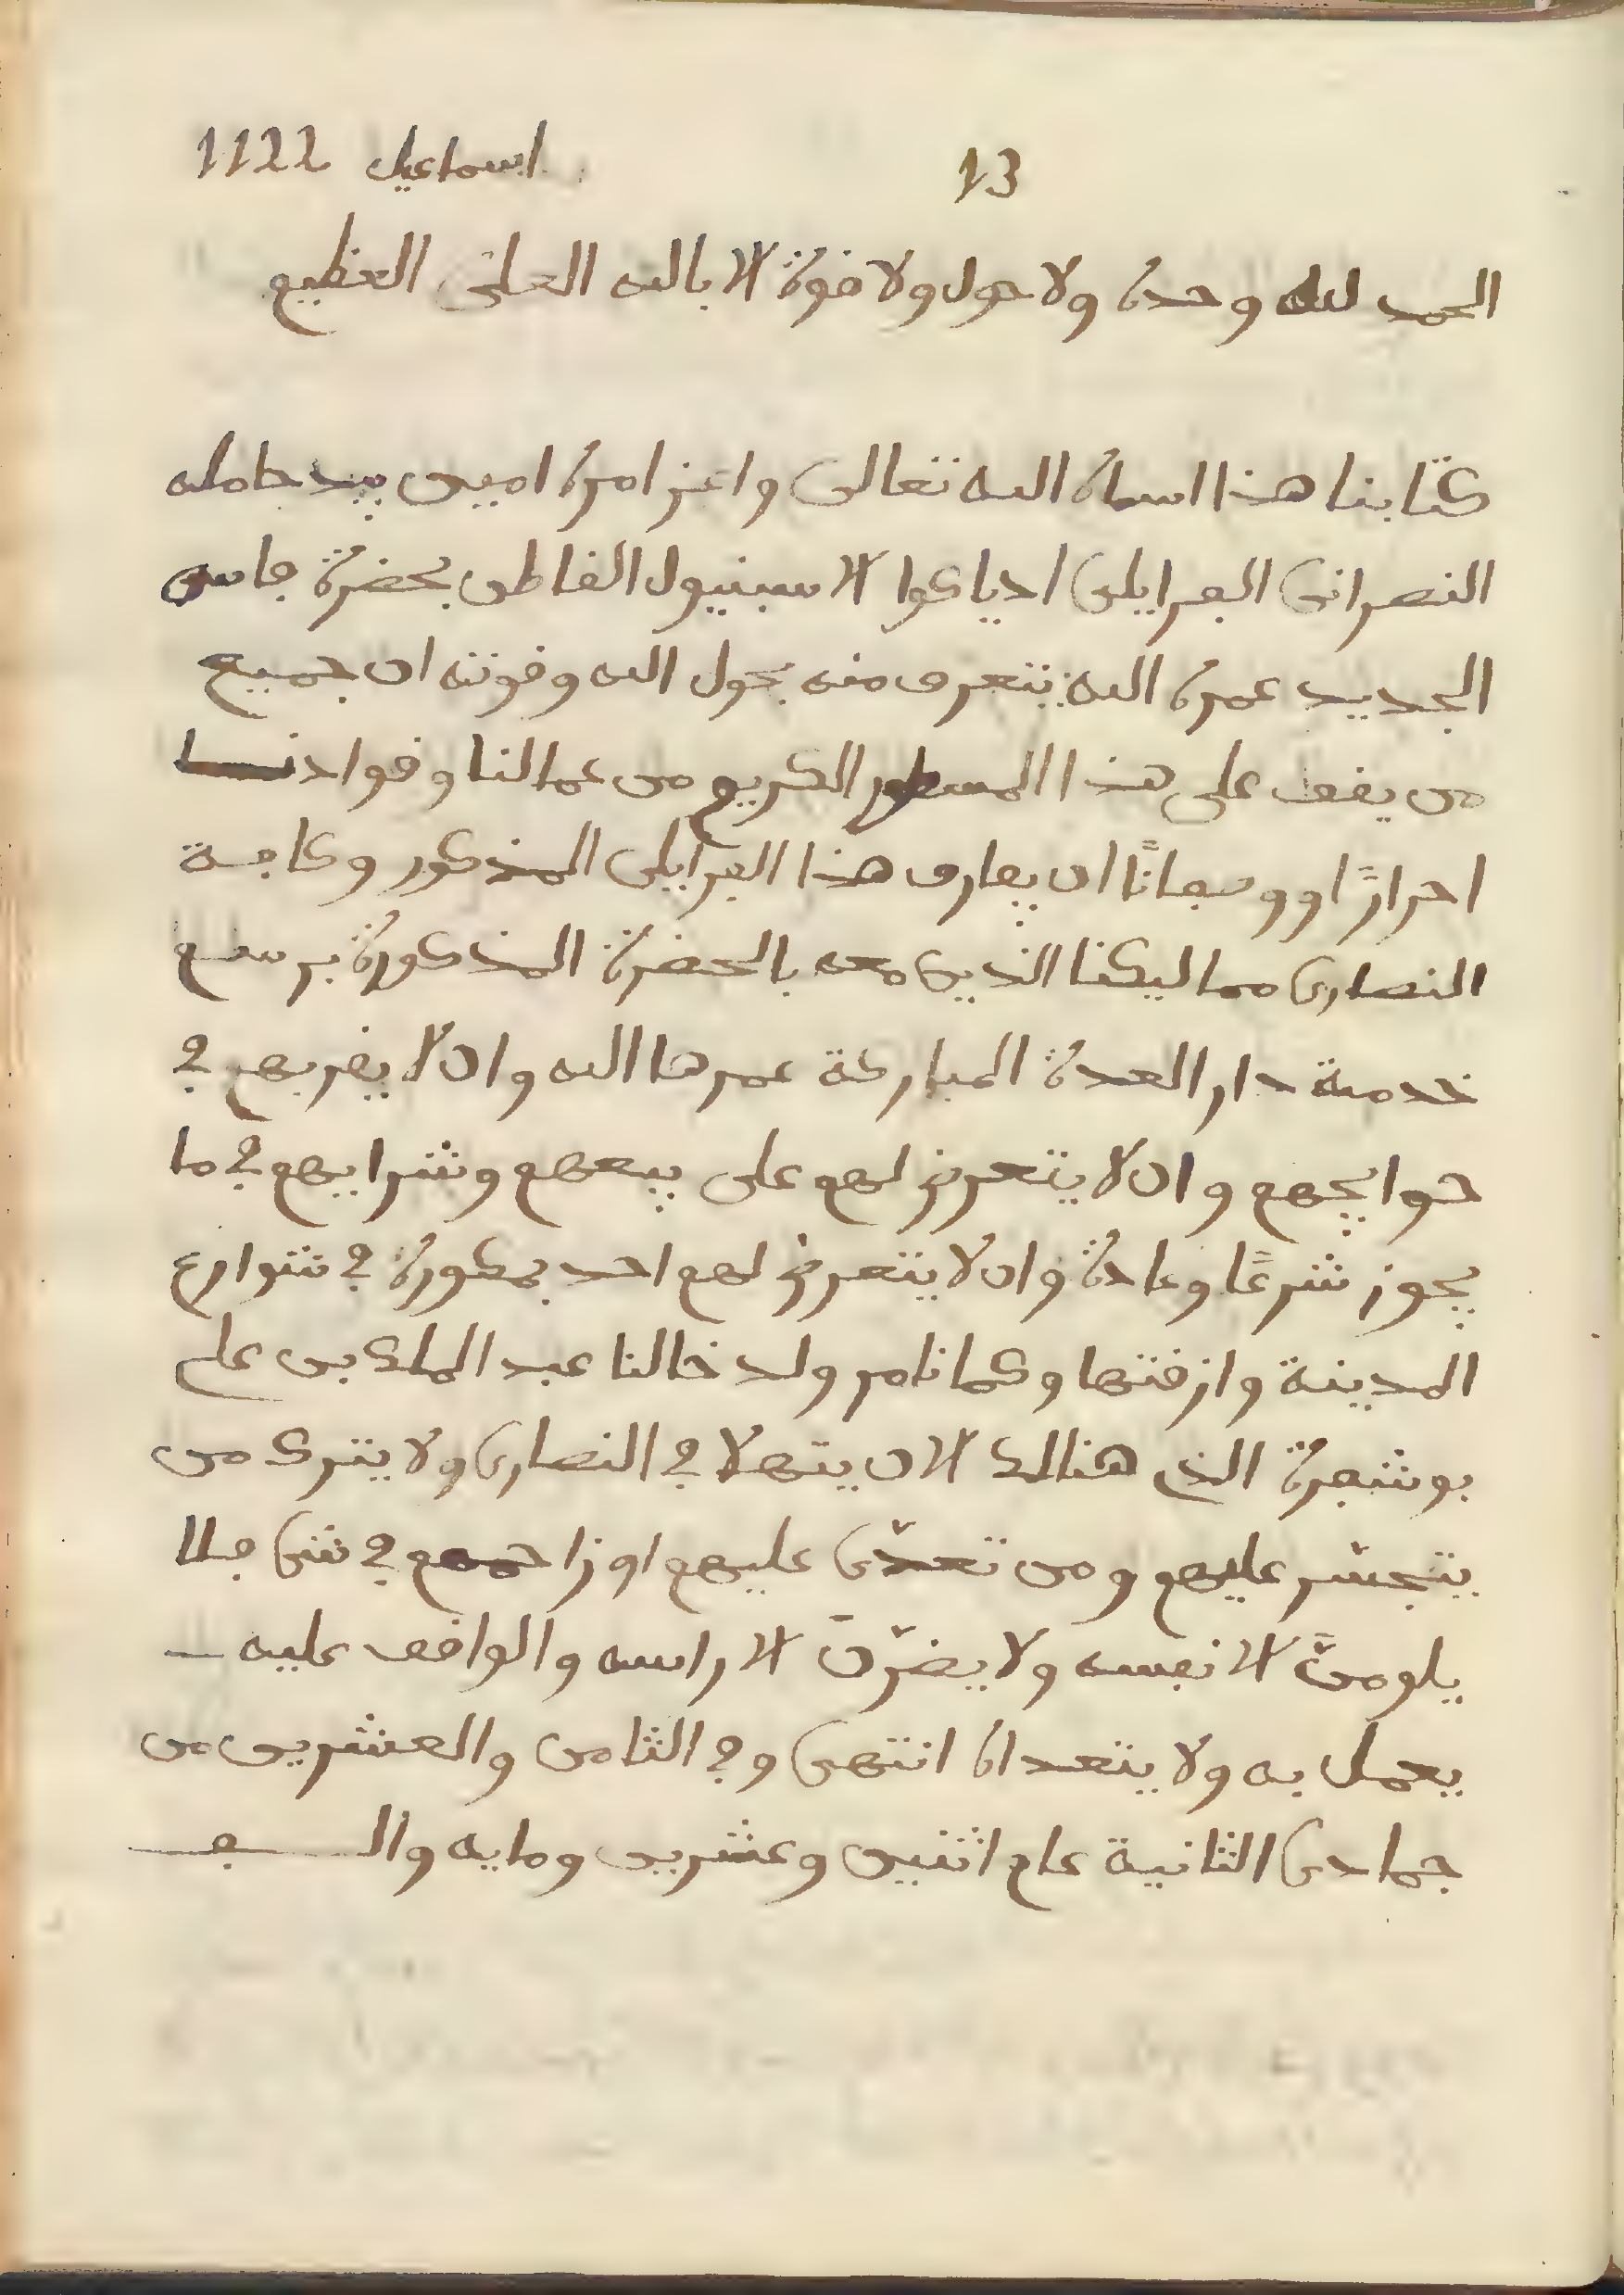 13 اسماعيل 1122
الحمد لله وحده ولا حول ولا قوة الا بالله العلي العظيم
كتابنا هذا اسماه الله تعالى واعز امره امين بيد حامله
النصراني الفرايلي ادياكوا الاسبنيول القاطن بحضرة فاس
الجديد عمره الله يتعرف منه بحول الله وقوته ان جميع
من يقف على هذا المسطور الكريم من عمالنا وقوادنا
احرارًا او وصفانًا ان يعارف هذا الفرايلي المذكور وكافة
النصارى مماليكنا الذين معه بالحضرة المذكورة برسم
خدمة دار العدة المباركة عمرها الله وان لا يقربهم في
حوايجهم وان لا يتعرض لهم على بيعهم وشرايهم في ما
يجوز شرعًا وعادة وان لا يتعرض لهم احد بمكورة في شوارع
المدينة وازقتها وكما نامر ولد خالنا عبد الملك بن علم
بوشفرة الذي هنالك الان يتهلا في النصارى ولا يترك من
يتجسر عليهم ومن تعدّى عليهم او زاحمهم في شي فلا
يلومنّ الا نفسه ولا يضرّنّ الا راسه والواقف عليه
يعمل به ولا يتعداه انتهى وفي الثامن والعشرين من
جمادى الثانية عام اثنين وعشرين ومايه والف